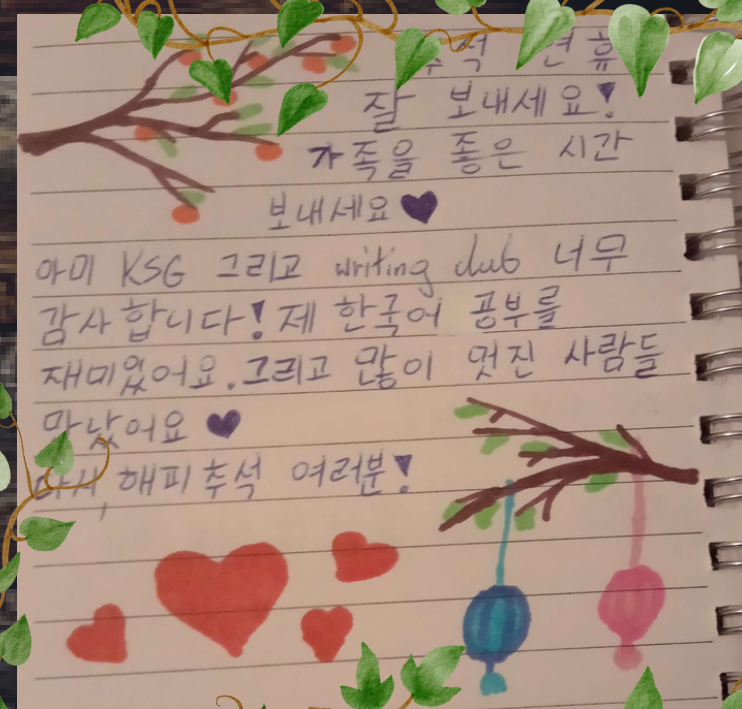 추석 연휴
잘 보내세요!
가족을 좋은 시간
보내세요
아미 KSG 그리고 writing club 너무
감사합니다! 제 한국어 공부를
재미있어요. 그리고 많이 멋진 사람들
만났어요
다시, 해피 추석 여러분!